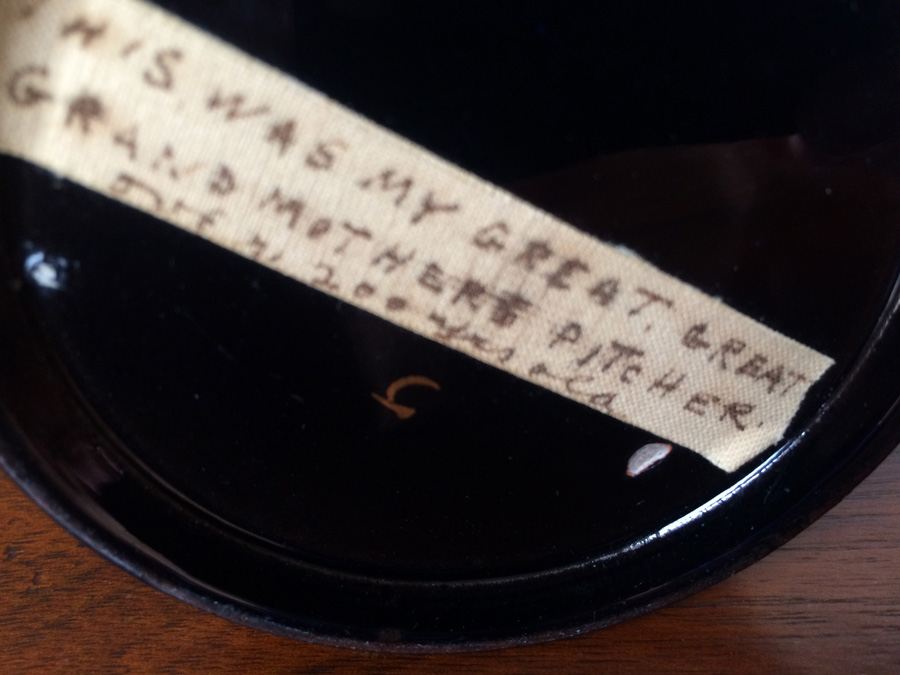 THIS WAS MY GREAT. GREAT
GRAND MOTHERS PITCHER.
200 yrs old